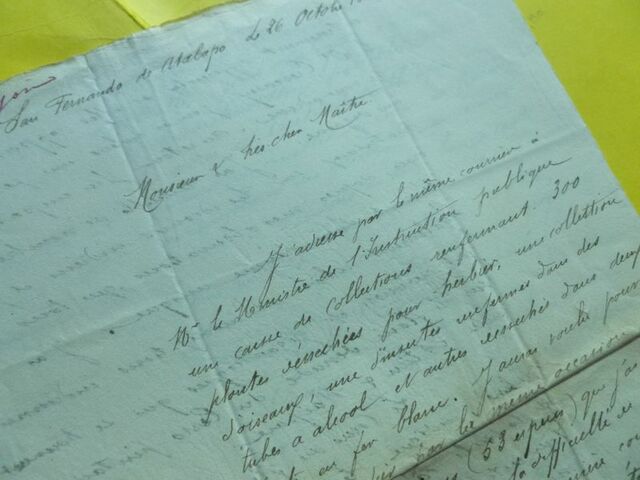 San Fernando de Atabapo le 26 Octobre
Monsieur & très cher Maître
J'adresse par le même courrier à
Mr le Ministre de l'Instruction publique
une caisse de collections renfermant 300
plantes désséchées pour herbier, une collection
d'oiseaux, une d'insectes renfermés dans des
tubes a alcool et autres desséchés dans deux
en fer blanc. J'aurais voulu pour
par la même occasion
(53 espèces) que j'ai
la difficulté de